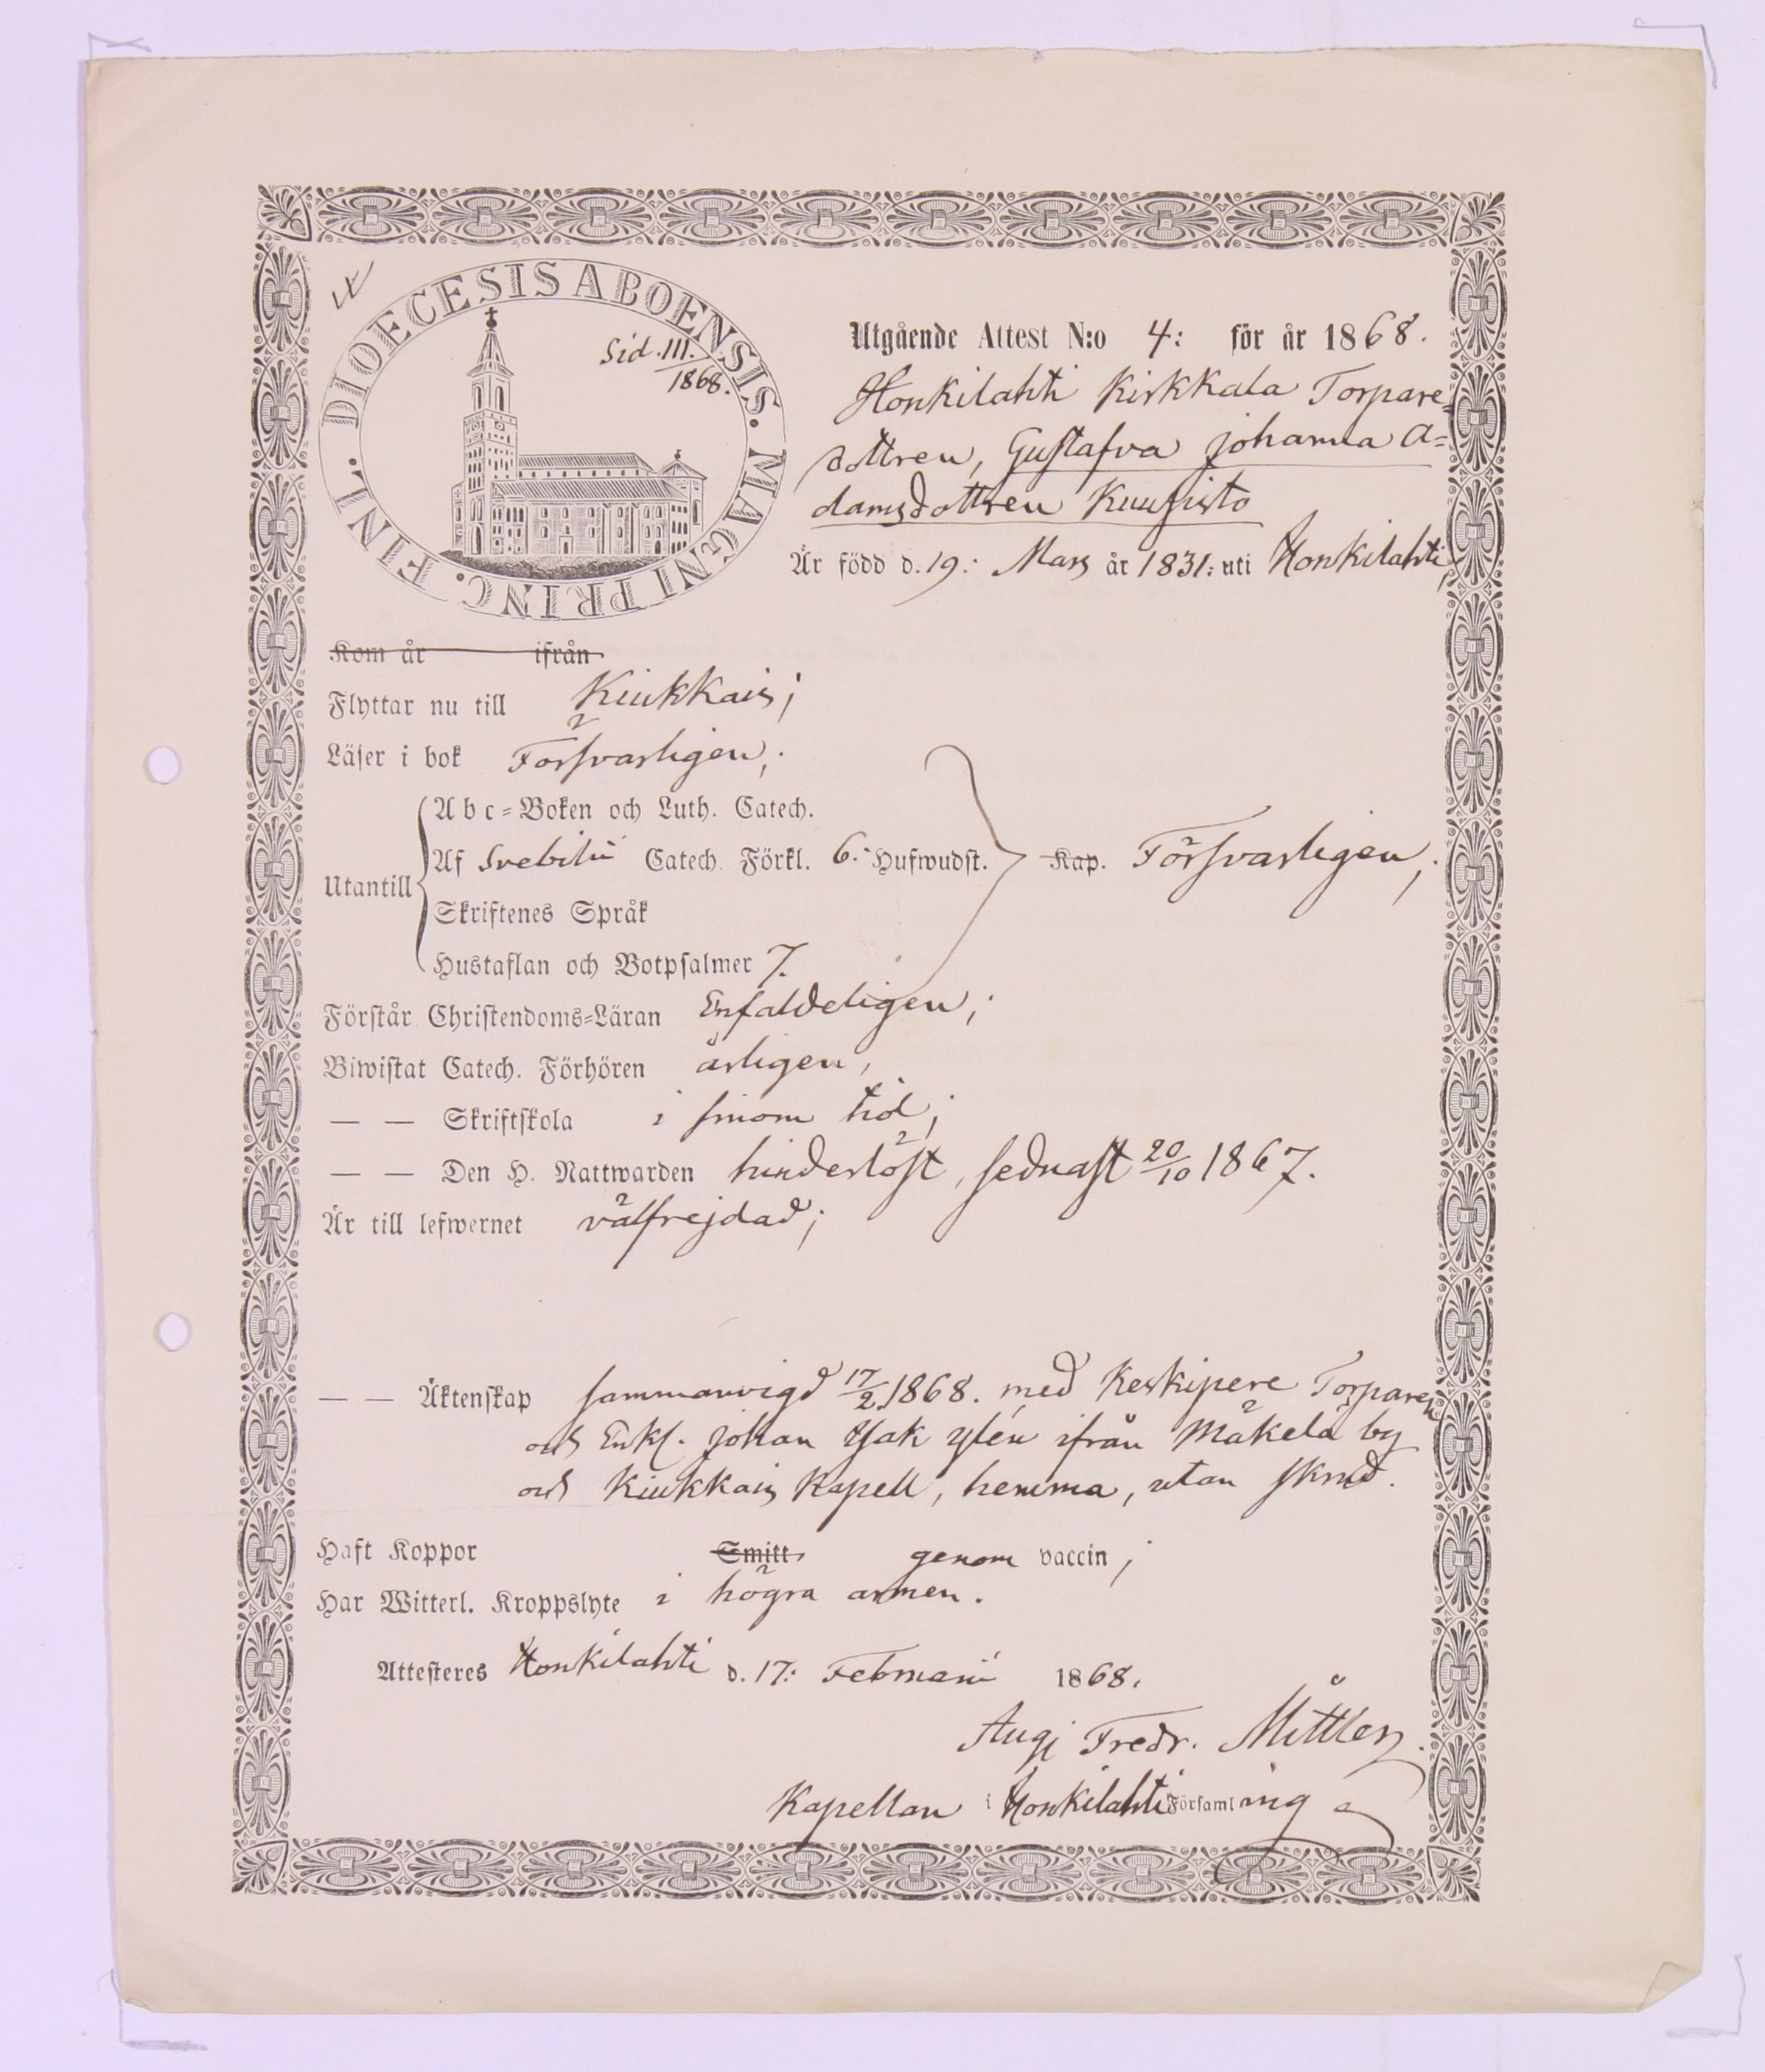 DIOECESIS ABOENSIS. MAGNI PRINC. FINL.
Sid. III.
1868.
Utgående Attest N:o 4: för år 1868.
Honkilahti Kirkkala Torpare=
dottren, Gustafva Johanna A=
damsdottren Kuusisto
Är född d. 19: Mars år 1831: uti Honkilahti,
Kom år ifrån
Flyttar nu till Kiukkais;
Läser i bok Försvarligen;
Abc=Boken och Luth. Catech.
Af Svebilii Catech. Förkl. 6: Hufwudst. Kap. Försvarligen;
Utantill
Skriftenes Språk
Hustaflan och Botpsalmer 7.
Förstår Christendoms=Läran Enfaldeligen;
Biwistat Catech. Förhören årligen,
— — Skriftskola i sinom tid;
— — Den H. Nattwarden hinderlöst, sednast 20/10 1867.
Är till lefwernet välfrejdad;
— — Äktenskap sammanvigd 17/2 1868. med Keskipere Torparen
och Enkl. Johan Isak Ylén ifrån Mäkelä by
och Kiukkais Kapell, hemma, utan skrud.
Haft Koppor Smitt. genom vaccin;
Har Witterl. Kroppslyte i högra armen.
Attesteres Honkilahti d. 17: Februarii 1868.
Fredr.
Kapellan i Honkilahti Församling